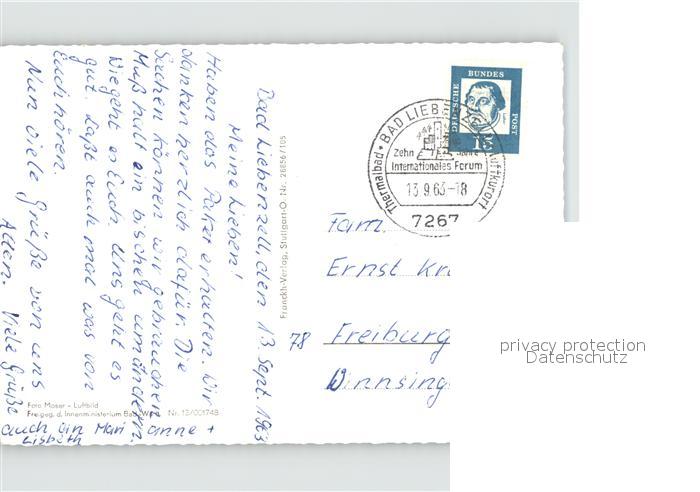 Bad Liebenzell, den 13 Sept. 1963
Meine Lieben!
Haben das Paket erhalten. Wir
danken herzlich dafür. Die
Sachen können wir gebrauchen
Muß halt ein bischen umändern.
Wie geht es Euch. Uns geht es
gut. Laßt auch mal was von
Euch hören.
Nun viele Grüße von uns
Allen. Viele Grüße
auch an Mari anne +
Lisbeth
Foto Moser - Luftbild
Freigeg. d. Innenministerium Bad. Nr. 13/001748
Franckh-Verlag, Stuttgart-O. Nr. 28856/105
DEUTSCHE BUNDES POST
15
Thermalbad • BAD LIEB
Zehn Jahre
Internationales Forum
13.9.63-18
7267
Fam.
Ernst Kr
78 Freiburg
Winnsing
privacy protection
Datenschutz